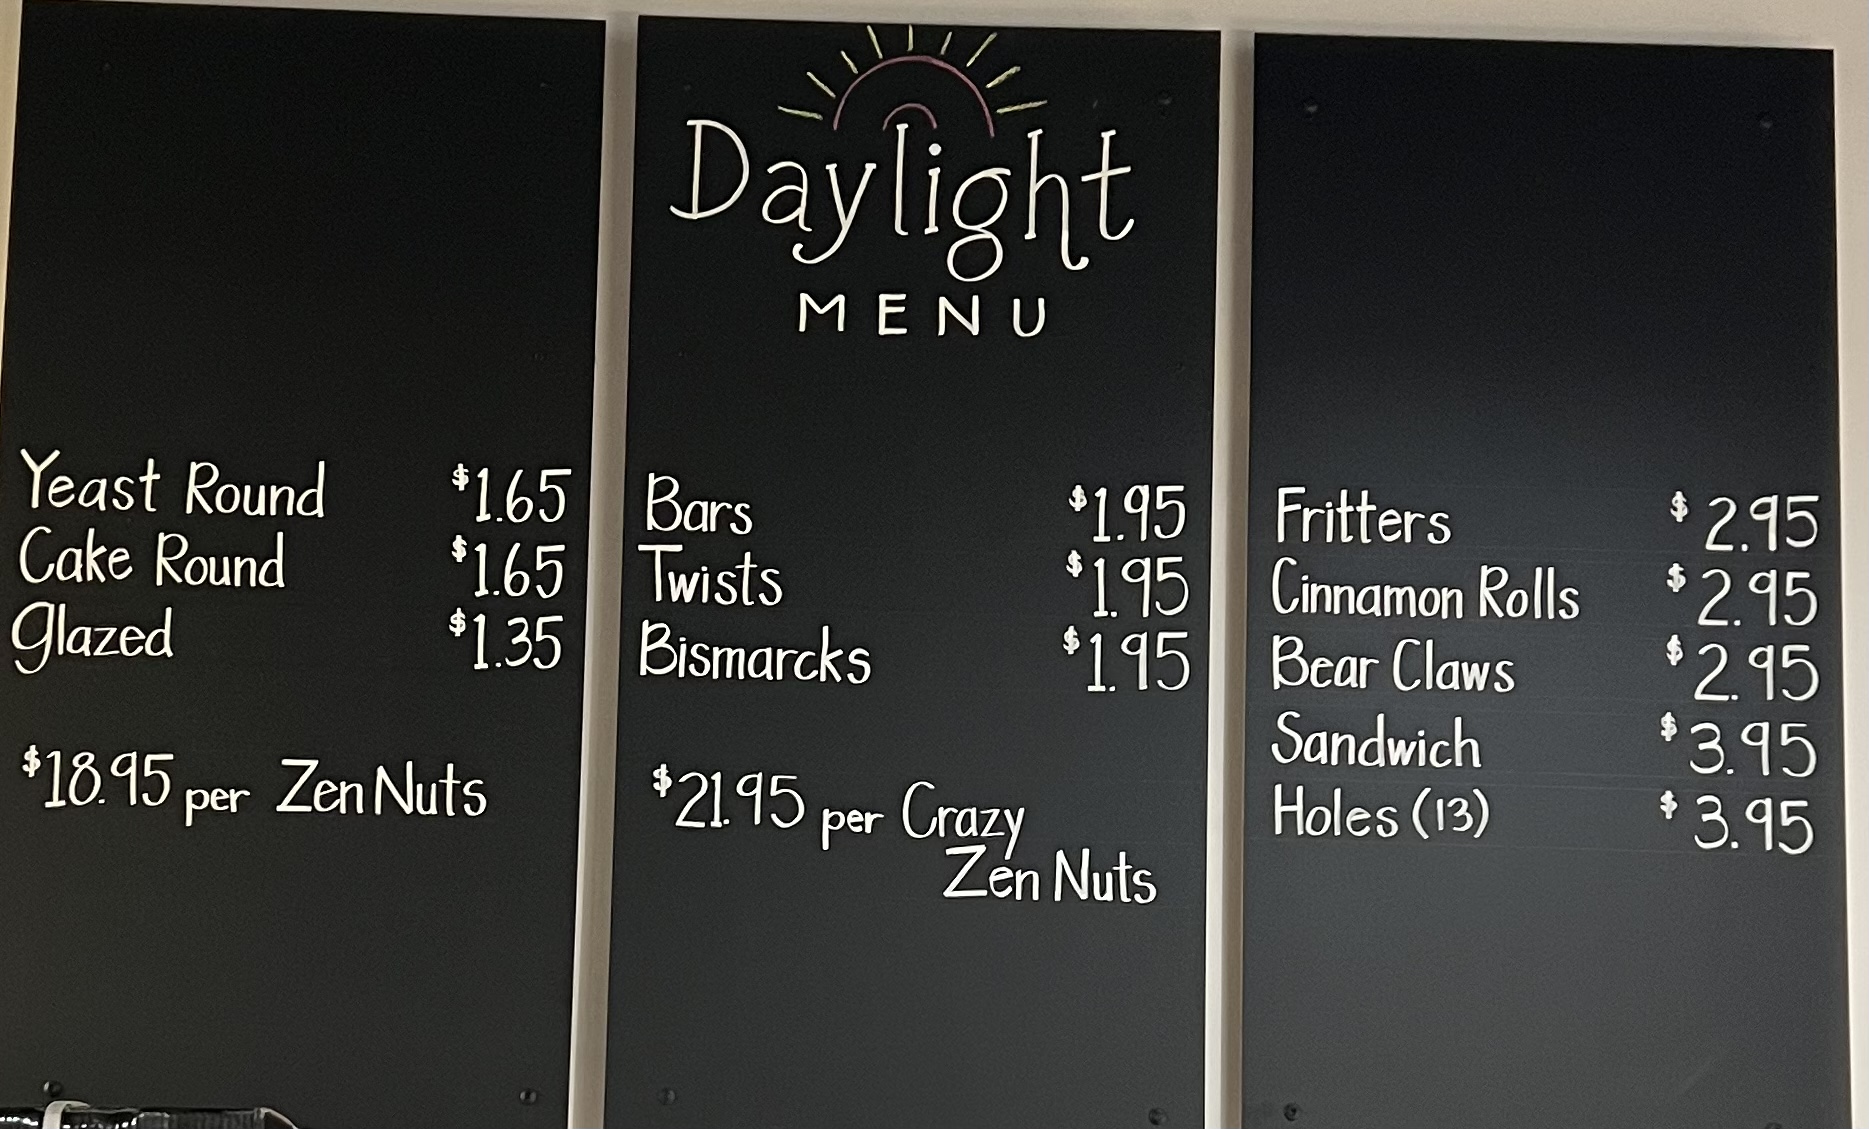 Daylight
MENU
Yeast Round $1.65
Cake Round $1.65
Glazed $1.35
$18.95 per Zen Nuts
Bars $1.95
Twists $1.95
Bismarcks $1.95
$21.95 per Crazy
Zen Nuts
Fritters $2.95
Cinnamon Rolls $2.95
Bear Claws $2.95
Sandwich $3.95
Holes (13) $3.95